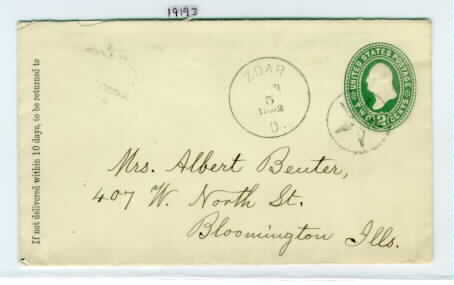 19193
If not delivered within 10 days, to be returned to
ZOAR
5
O.
UNITED STATES POSTAGE
TWO 2 CENTS
Mrs. Albert Beuter,
407 W. North St.
Bloomington Ills.